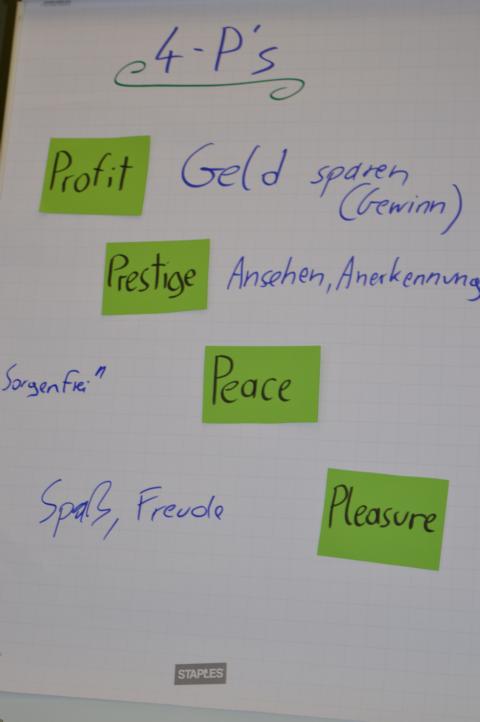 4-P's
Profit Geld sparen
(Gewinn)
Prestige Ansehen, Anerkennung
Sorgenfrei" Peace
Spaß, Freude Pleasure
STAPLES